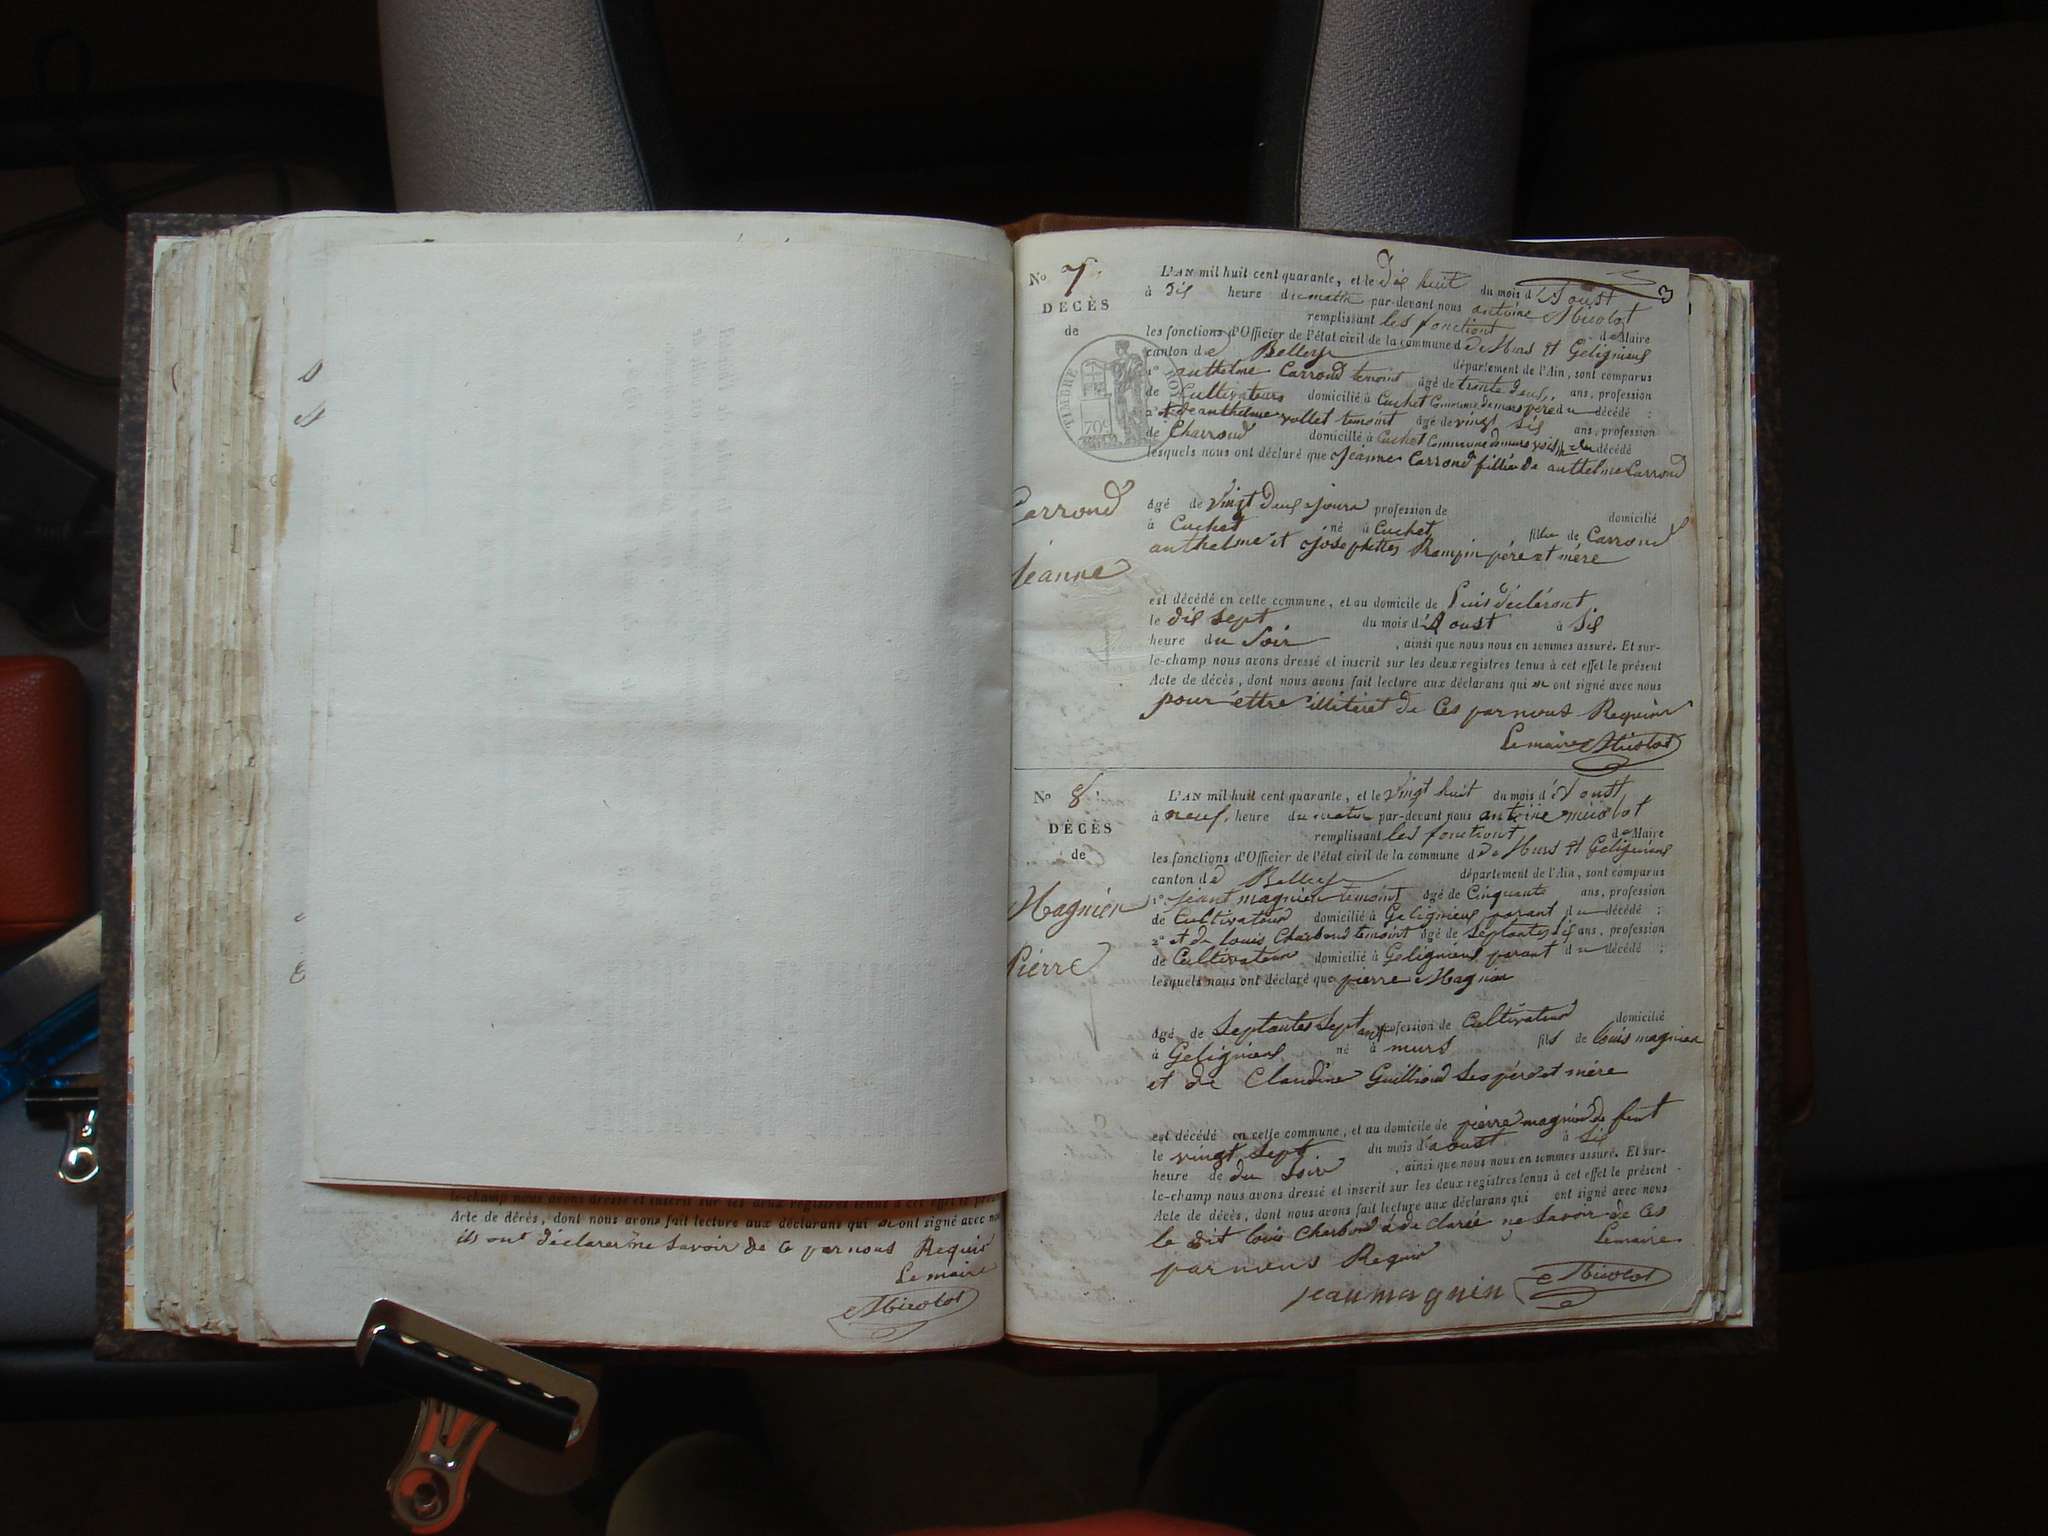 le-champ nous avons dressé et inscrit sur les deux registres tenus à cet effet le pré
Acte de décès, dont nous avons fait lecture aux déclarans qui ne ont signé avec no
ils ont déclarer ne savoir de ce par nous Requis
Le maire
Nicolot
3
No 7
DÉCÈS
de
TIMBRE ROYAL
70c
Carrond
Jeanne
L'AN mil huit cent quarante, et le dis huit du mois d'Aoust
à dis heure du matin par-devant nous antoine Nicolot
remplissant les fonctiont de Maire
les fonctions d'Officier de l'état civil de la commune de Murs et Gelignieux
canton de Belley département de l'Ain, sont comparus
1° anthelme Carrond temoint âgé de trente deux, ans, profession
de Cultivateurs domicilié à Cuchet Commune de murs pere du décédé ;
2° et de anthelme vollet temoint âgé de vingt sis ans, profession
de Charrond domicilié à Cuchet Commune de murs voisin du décédé
lesquels nous ont déclaré que Jeanne Carrond fillie de anthelme Carrond
âgé de vingt deux jours profession de domicilié
à Cuchet né à Cuchet fille de Carrond
anthelme et josephttes Rampin pére et mére
est décédé en cette commune, et au domicile de Luis déclaront
le dis sept du mois d'Aoust à sis
heure du Soir , ainsi que nous nous en sommes assuré. Et sur-
le-champ nous avons dressé et inscrit sur les deux registres tenus à cet effet le présent
Acte de décès, dont nous avons fait lecture aux déclarans qui ne ont signé avec nous
pour ettre illiteret de Ces par nous Requier
Le maire Nicolot
No 8
DÉCÈS
de
Magnien
Pierre
L'AN mil huit cent quarante, et le vingt huit du mois d'Aoust
à neuf, heure du matin par-devant nous antoine nicolot
remplissant les fonctiont de Maire
les fonctions d'Officier de l'état civil de la commune de Murs et Geligniens
canton de Belley département de l'Ain, sont comparus
1° Jeant magnien temoint âgé de Cinquante ans, profession
de Cultivateur domicilié à Geligniens parant du décédé ;
2° et de louis Charbond temoint âgé de septantes sis ans, profession
de Cultivateur domicilié à Geligniens parant du décédé ;
lesquels nous ont déclaré que pierre Magnien
âgé de Septantes sept ans profession de Cultivateur domicilié
à Geligniens né à murs fils de louis magnien
et de Claudine Guillioud ses pére et mére
est décédé en cette commune, et au domicile de pierre magnien de funt
le vingt sept du mois d'aoust à sis
heure de du Soir , ainsi que nous nous en sommes assuré. Et sur-
le-champ nous avons dressé et inscrit sur les deux registres tenus à cet effet le présent
Acte de décès, dont nous avons fait lecture aux déclarans qui ont signé avec nous
le dit louis Charbond à de clarée ne savoir de ces
par nous Requis Le maire
jean magnin Nicolot